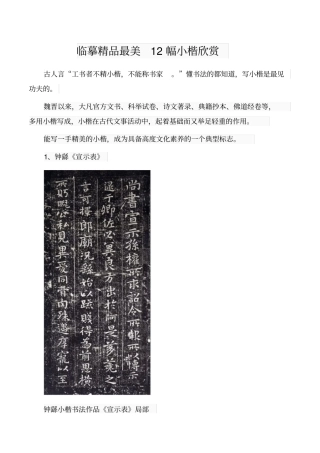 临摹精品最美 12 幅小楷欣赏
古人言“工书者不精小楷，不能称书家 。”懂书法的都知道，写小楷是最见
功夫的。
魏晋以来，大凡官方文书、科举试卷、诗文著录、典籍抄本、佛道经卷等，
多用小楷写成，小楷在古代文事活动中，起着基础而又举足轻重的作用。
能写一手精美的小楷，成为具备高度文化素养的一个典型标志。
1、钟繇《宣示表》
尚書宣示孫權所求詔令所報所以博示
逮于卿佐必冀良方出於阿是芻蕘之
言可擇郎廟況繇始以疏賤得為前恩橫
所眄睨公私見異愛同骨肉殊遇厚寵以至
钟繇小楷书法作品《宣示表》局部